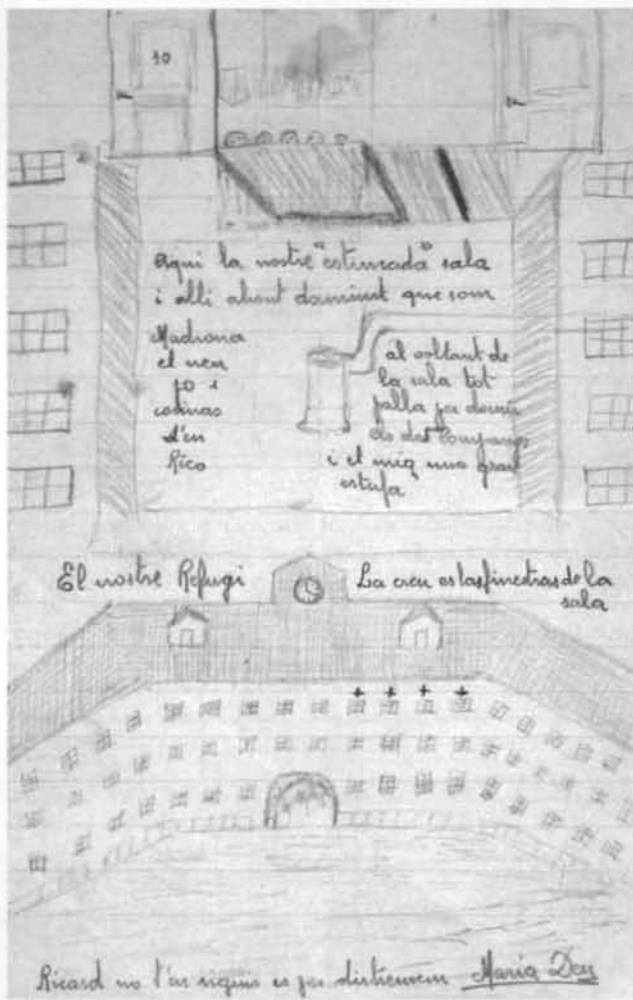 10
Aqui la nostre "estimada" sala
i alli ahont dormint que som
Madrona
el nen
jo i
cosinas
d'en
Rico
al voltant de
la sala tot
palla per dormir
els dos Companys
i el mig una gran
estufa
El nostre Refugi
La creu es las finestras de la
sala
Ricard no t'en riguis es per distreurem Maria Deu